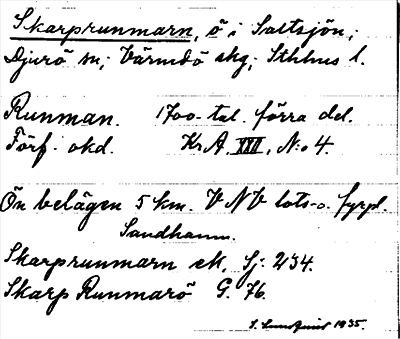 Skarprunmarn, ö i Saltsjön,
Djurö sn; Värmdö skg; Sthlms l.
Runman. 1700-tal. förra del.
Förf. okd. Kr.A. XXII, N:o 4.
Ön belägen 5 km. V NV lots- o. fyrpl.
Sandhamn.
Skarprunmarn ek, Sj. 234.
Skarp Runmarö G. 76.
S. Lundquist 1935.